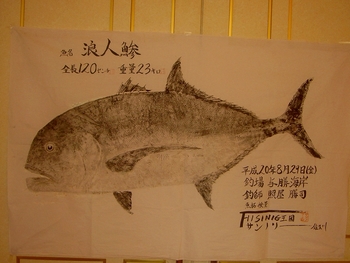 魚名 浪人鯵
全長120センチ 重量23キロ
平成20年8月29日(金)
釣場 与勝海岸
釣師 照屋 勝司
FISHING王国
サンノリー